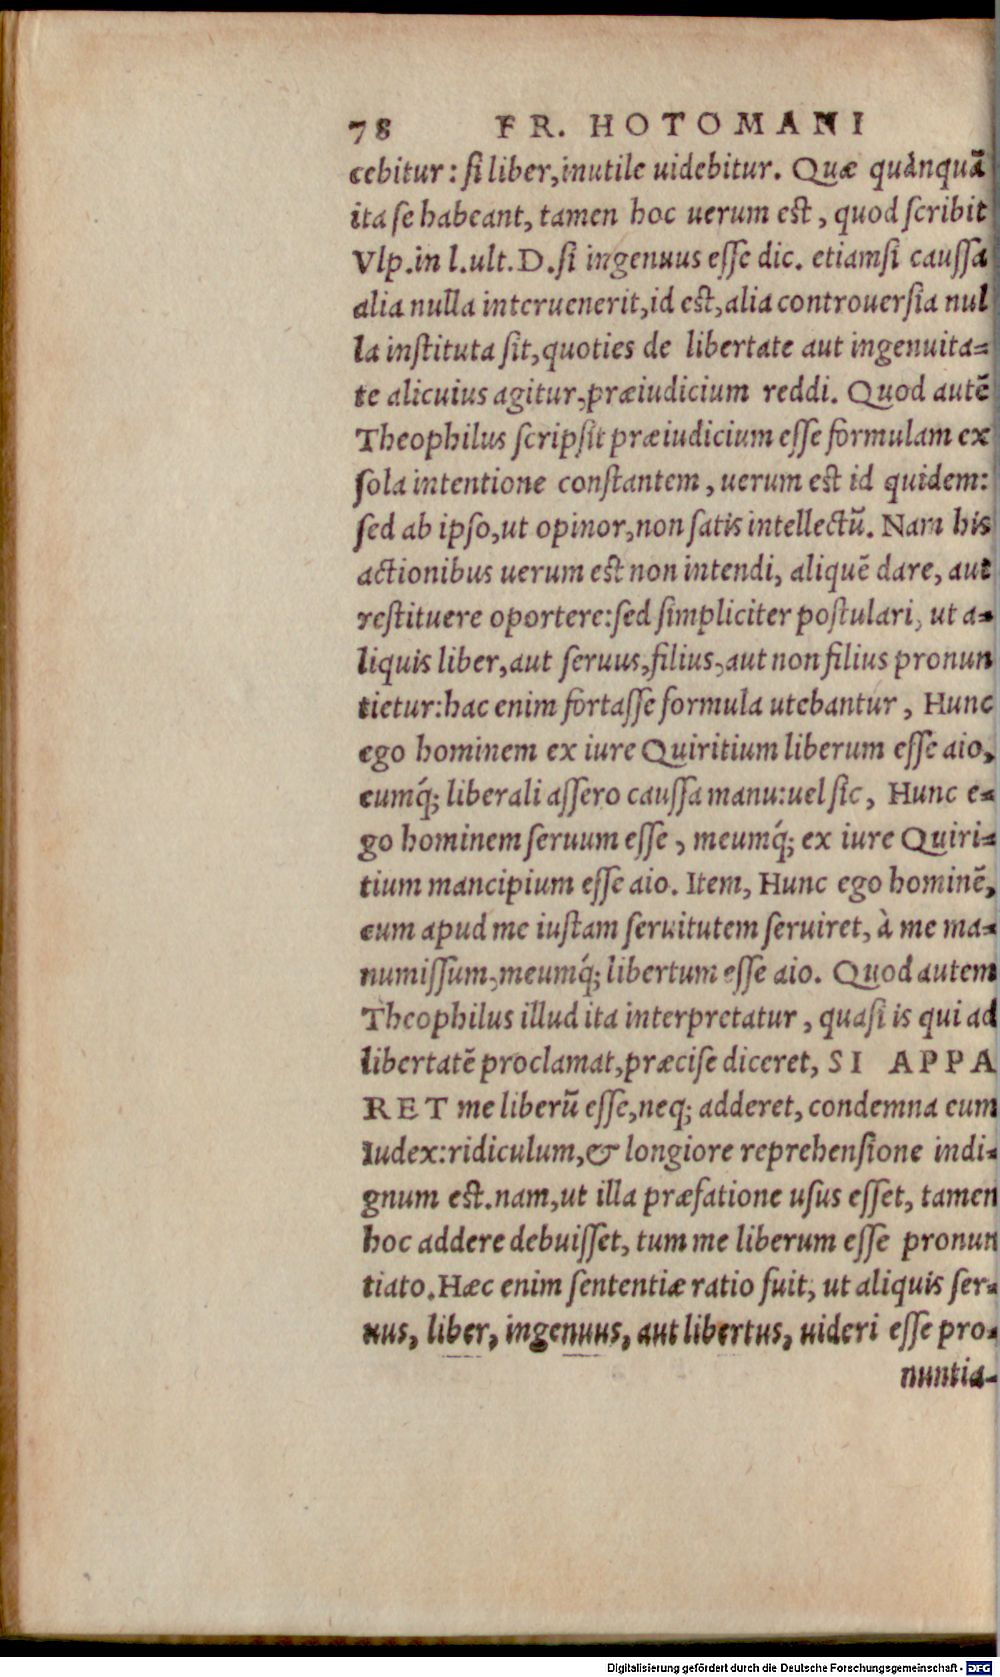 78 FR. HOTOMANI
cebitur: si liber, inutile uidebitur. Quæ quànquã
ita se habeant, tamen hoc uerum est, quod scribit
Vlp. in l. ult. D. si ingenuus esse dic. etiamsi caussa
alia nulla interuenerit, id est, alia controuersia nul
la instituta sit, quoties de libertate aut ingenuita-
te alicuius agitur, præiudicium reddi. Quod autẽ
Theophilus scripsit præiudicium esse formulam ex
sola intentione constantem, uerum est id quidem:
sed ab ipso, ut opinor, non satis intellectũ. Nam his
actionibus uerum est non intendi, aliquẽ dare, aut
restituere oportere: sed simpliciter postulari, ut a-
liquis liber, aut seruus, filius, aut non filius pronun
tietur: hac enim fortasse formula utebantur, Hunc
ego hominem ex iure Quiritium liberum esse aio,
eumq́; liberali assero caussa manu: uel sic, Hunc e-
go hominem seruum esse, meumq́; ex iure Quiri-
tium mancipium esse aio. Item, Hunc ego hominẽ,
cum apud me iustam seruitutem seruiret, à me ma-
numissum, meumq́; libertum esse aio. Quod autem
Theophilus illud ita interpretatur, quasi is qui ad
libertatẽ proclamat, præcise diceret, SI APPA
RET me liberũ esse, neq; adderet, condemna eum
Iudex: ridiculum, & longiore reprehensione indi-
gnum est. nam, ut illa præfatione usus esset, tamen
hoc addere debuisset, tum me liberum esse pronun
tiato. Hæc enim sententiæ ratio fuit, ut aliquis ser-
uus, liber, ingenuus, aut libertus, uideri esse pro-
nuntia-
Digitalisierung gefördert durch die Deutsche Forschungsgemeinschaft - DFG